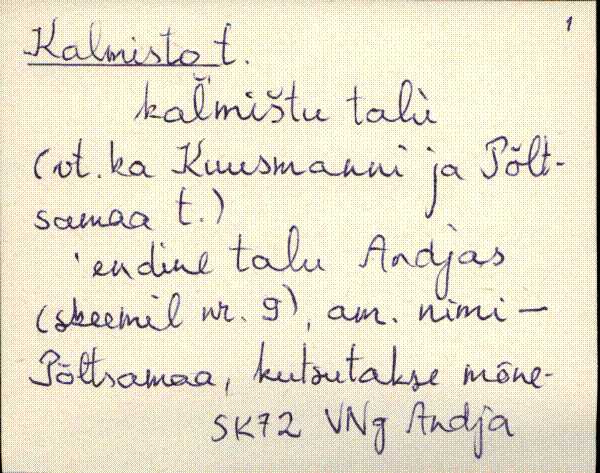 1
Kalmisto t.
kal̆mištu talù
(vt. ka Kuusmanni ja Põlt-
samaa t.)
'endine talu Andjas
(skeemil nr. 9), am. nimi —
Põltsamaa, kutsutakse mõne-
SK72 VNg Andja